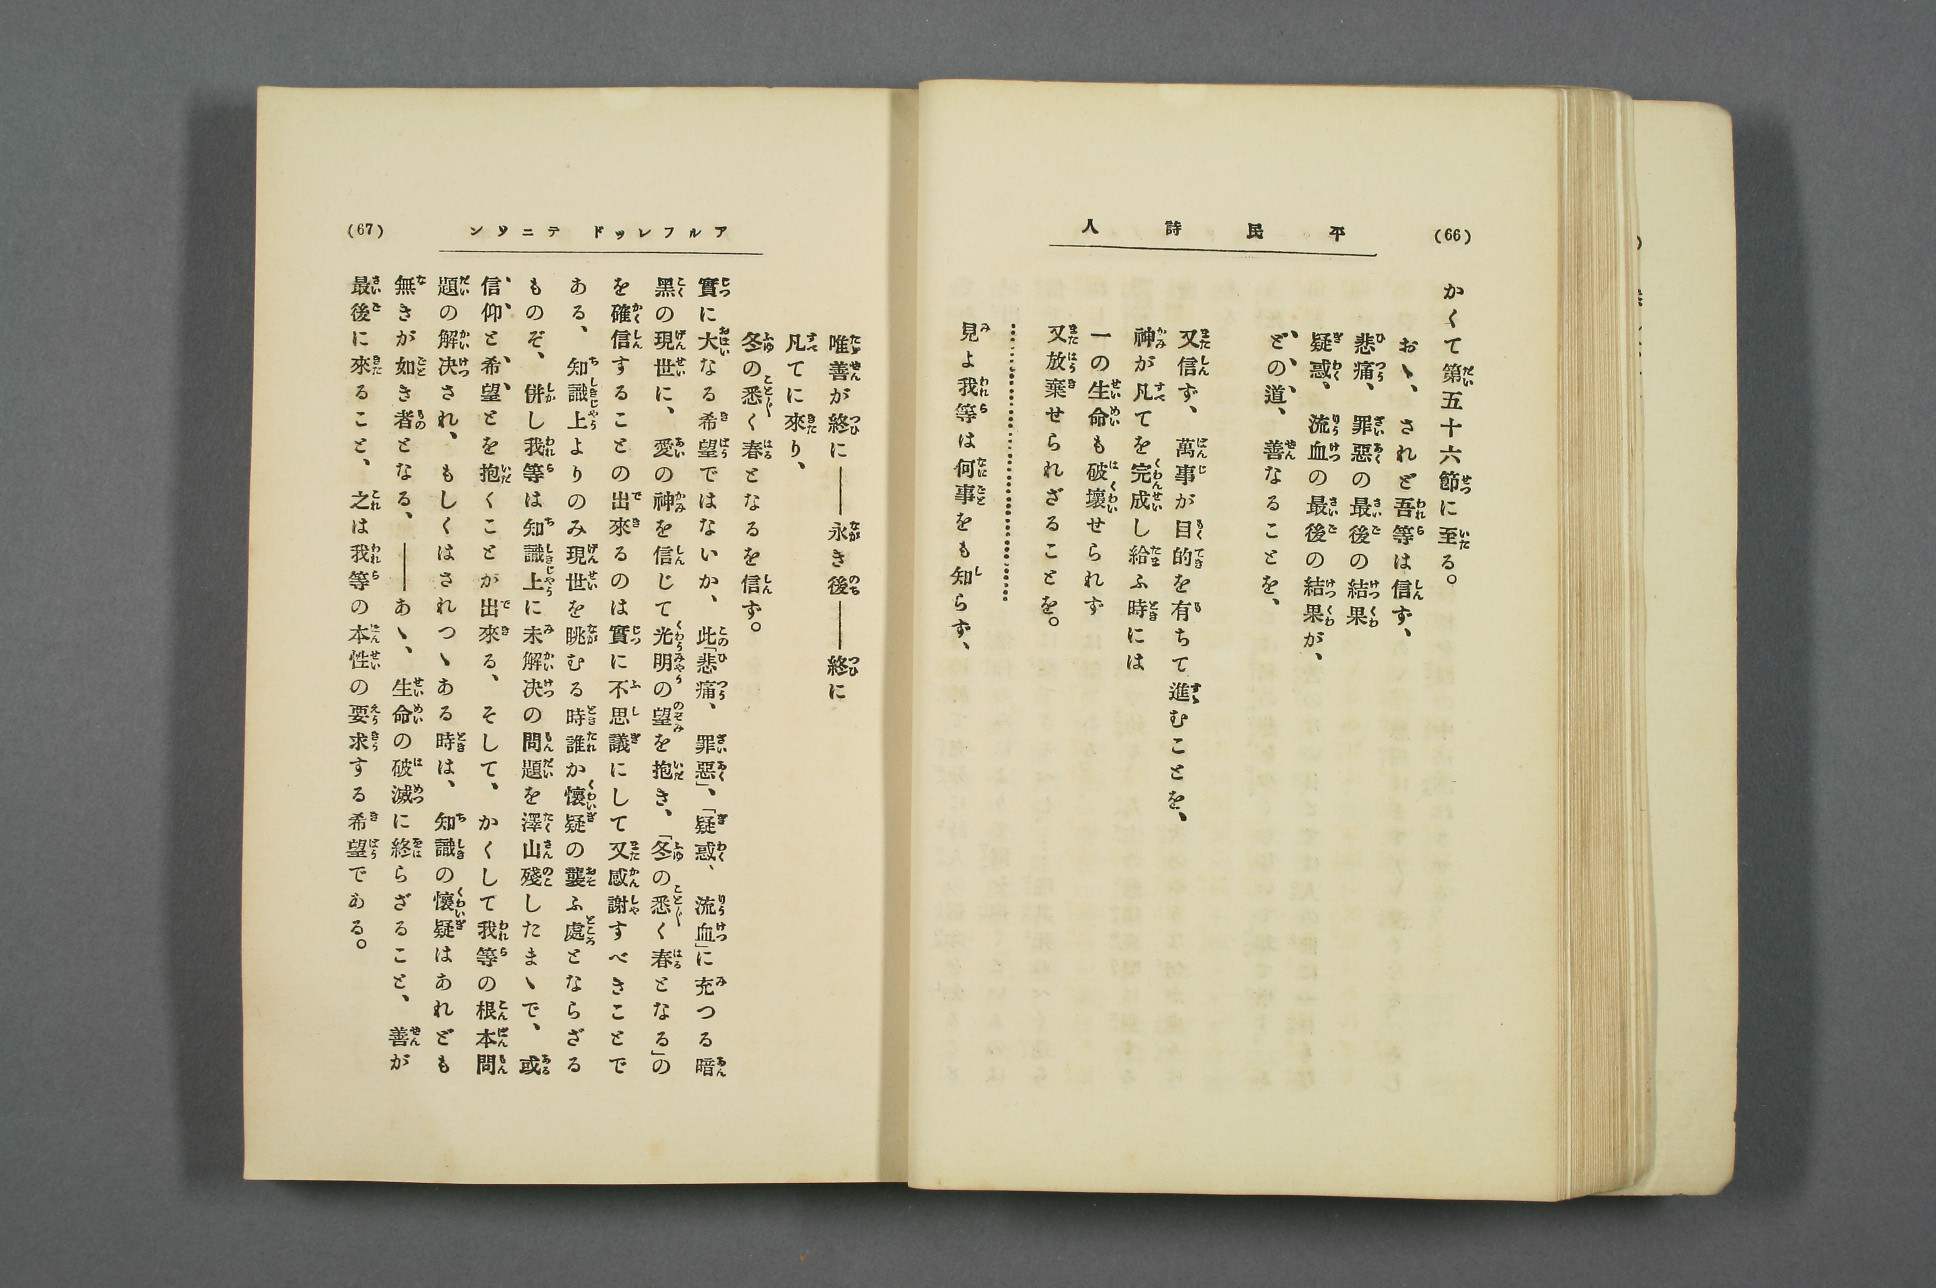 (66)
平民詩人
かくて第五十六節に至る。
おゝ、されど吾等は信ず、
悲痛、罪惡の最後の結果
疑惑、流血の最後の結果が、
どの道、善なることを、
又信ず、萬事が目的を有ちて進むことを、
神が凡てを完成し給ふ時には
一の生命も破壞せられず
又放棄せられざることを。
見よ我等は何事をも知らず、
(67)
アルフレッド テニソン
唯善が終に――永き後――終に
凡てに來り、
冬の悉く春となるを信ず。
實に大なる希望ではないか、此「悲痛、罪惡」、「疑惑、流血」に充つる暗
黑の現世に、愛の神を信じて光明の望を抱き、「冬の悉く春となる」の
を確信することの出來るのは實に不思議にして又感謝すべきことで
ある、知識上よりのみ現世を眺むる時誰か懷疑の襲ふ處とならざる
ものぞ、併し我等は知識上に未解決の問題を澤山殘したまゝで、或
信仰と希望とを抱くことが出來る、そして、かくして我等の根本問
題の解決され、もしくはされつゝある時は、知識の懷疑はあれども
無きが如き者となる、――あゝ、生命の破滅に終らざること、善が
最後に來ること、之は我等の本性の要求する希望である。